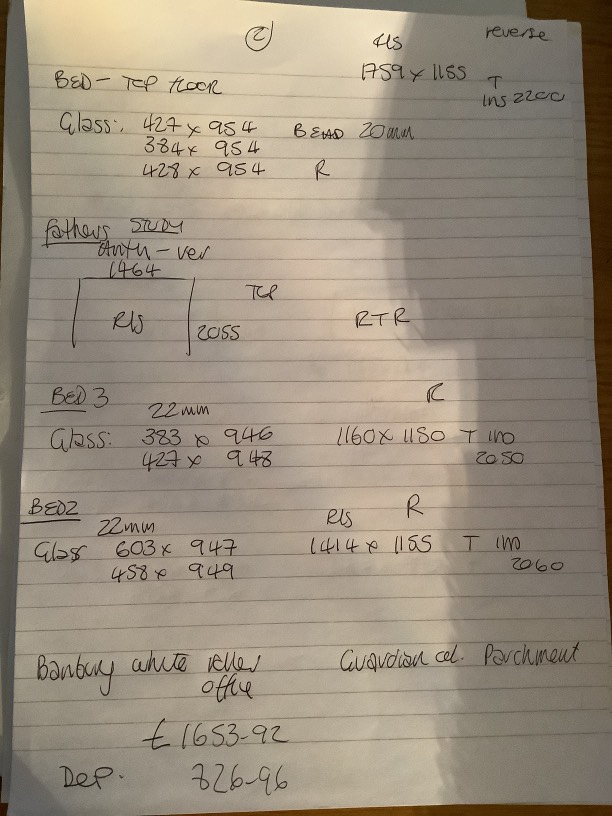 2
R/s reverse
BED - TOP FLOOR 1759 x 1155 T
ins 2200
Glass: 427 x 954 BEAD 20mm
384 x 954
428 x 954 R
Fathers STUDY
- ver
1464
R/s TOP RTR
2055
BED 3 R
22mm
Glass: 383 x 946 1160 x 1180 T ins
427 x 948 2050
BED2 R/s R
22mm
Glass 603 x 947 1414 x 1155 T ins
458 x 949 2060
Banbury white roller Guardian col. Parchment
office
£1653-92
Dep. 826-96